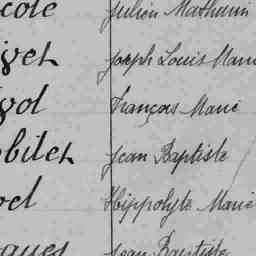 cole Julien Mathurin
Joseph Louis Marie
François Marie
Jean Baptiste
Hippolyte Marie
Jean Baptiste